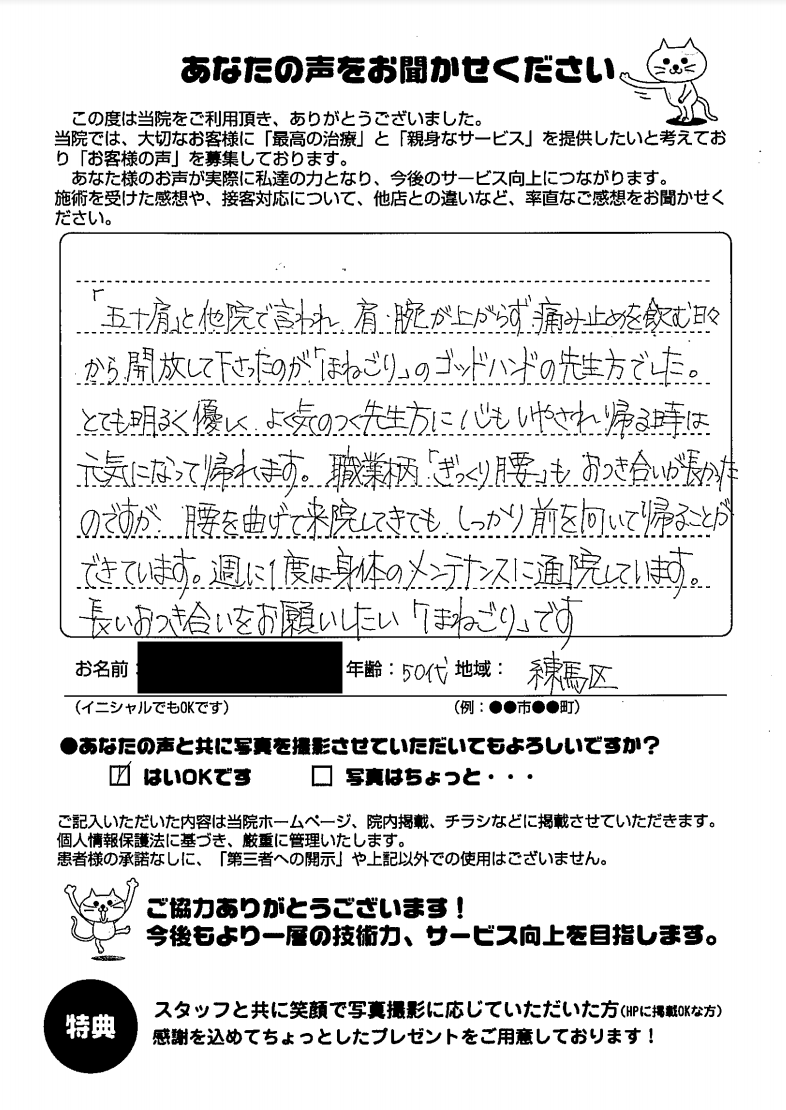 あなたの声をお聞かせください
この度は当院をご利用頂き、ありがとうございました。
当院では、大切なお客様に「最高の治療」と「親身なサービス」を提供したいと考えてお
り「お客様の声」を募集しております。
あなた様のお声が実際に私達の力となり、今後のサービス向上につながります。
施術を受けた感想や、接客対応について、他店との違いなど、率直なご感想をお聞かせく
ださい。
「五十肩」と他院で言われ、肩・腕が上がらず痛み止めを飲む日々
から開放して下さったのが「ほねごり」のゴッドハンドの先生方でした。
とても明るく優しく、よく気のつく先生方に心もいやされ帰る時は
元気になって帰れます。職業柄「ぎっくり腰」も おつき合いが長かった
のですが、腰を曲げて来院してきても、しっかり前を向いて帰ることが
できています。週に1度は身体のメンテナンスに通院しています。
長いおつき合いをお願いしたい「ほねごり」です
お名前: 年齢:50代 地域: 練馬区
(イニシャルでもOKです) (例:●●市●●町)
●あなたの声と共に写真を撮影させていただいてもよろしいですか?
☑ はいOKです □ 写真はちょっと・・・
ご記入いただいた内容は当院ホームページ、院内掲載、チラシなどに掲載させていただきます。
個人情報保護法に基づき、厳重に管理いたします。
患者様の承諾なしに、「第三者への開示」や上記以外での使用はございません。
ご協力ありがとうございます!
今後もより一層の技術力、サービス向上を目指します。
特典
スタッフと共に笑顔で写真撮影に応じていただいた方(HPに掲載OKな方)
感謝を込めてちょっとしたプレゼントをご用意しております!